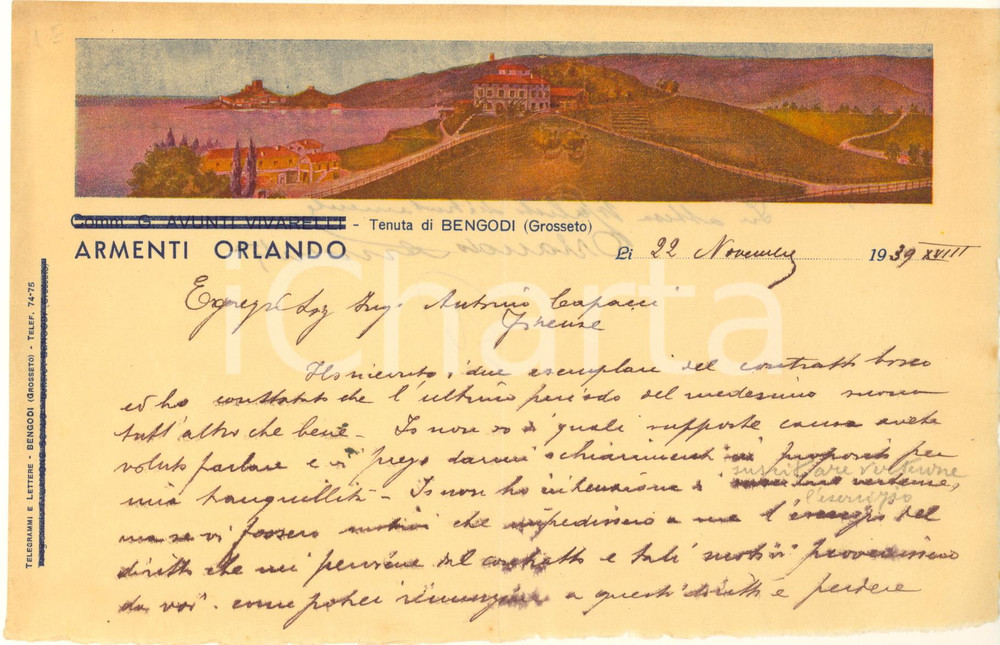 Comm. G. AVUNTI VIVARELLI - Tenuta di BENGODI (Grosseto)
ARMENTI ORLANDO
Li 22 Novembre 1939 XVIII
TELEGRAMMI E LETTERE - BENGODI (GROSSETO) - TELEF. 74-75
Egregi Sig Ing. Antonio Capacci
Firenze
Ho ricevuto i due esemplari del contratto bosco
ed ho constatato che l'ultimo periodo del medesimo suona
tutt'altro che bene - Io non so di quali supposte cause avete
voluto parlare e vi prego darmi schiarimenti in proposito per
suscitare vertenze
mia tranquillità - Io non ho intenzione di vertenze,
l'esercizio
ma se vi fossero motivi che impedissero a me l'esercizio del
diritto che mi perviene dal contratto e tali motivi provenissero
da voi - come potrei rinunziare a questi diritti e perdere
iCharta